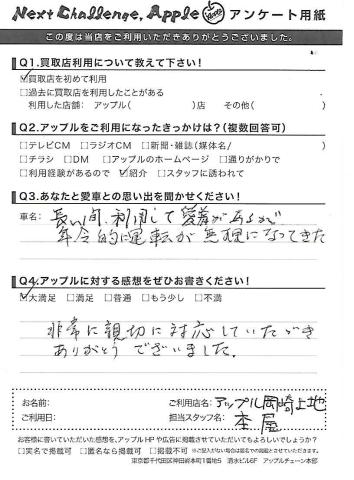 Next Challenge, Apple アンケート用紙
この度は当店をご利用いただきありがとうございました。
Q1.買取店利用について教えて下さい!
☑買取店を初めて利用
□過去に買取店を利用したことがある
利用した店舗: アップル( )店 その他( )
Q2.アップルをご利用になったきっかけは?(複数回答可)
□テレビCM □ラジオCM □新聞・雑誌(媒体名/ )
□チラシ □DM □アップルのホームページ □通りがかりで
□利用経験があるので ☑紹介 □スタッフに誘われて
Q3.あなたと愛車との思い出を聞かせください!
車名: 長い間、利用して愛着があるが
年令的に運転が無理になってきた
Q4.アップルに対する感想をぜひお書きください!
☑大満足 □満足 □普通 □もう少し □不満
非常に親切に対応していただき
ありがとうございました.
お名前: ご利用店名: アップル岡崎上地
ご利用日: 担当スタッフ名:
お客様に書いていただいた感想を、アップルHPや広告に掲載させていただいてもよろしいでしょうか?
□実名で掲載可 □匿名なら掲載可 □掲載不可 (※ご記入がない場合は匿名での掲載とさせていただきます。)
東京都千代田区神田紺本町1番地5 清水ビル6F アップルチェーン本部